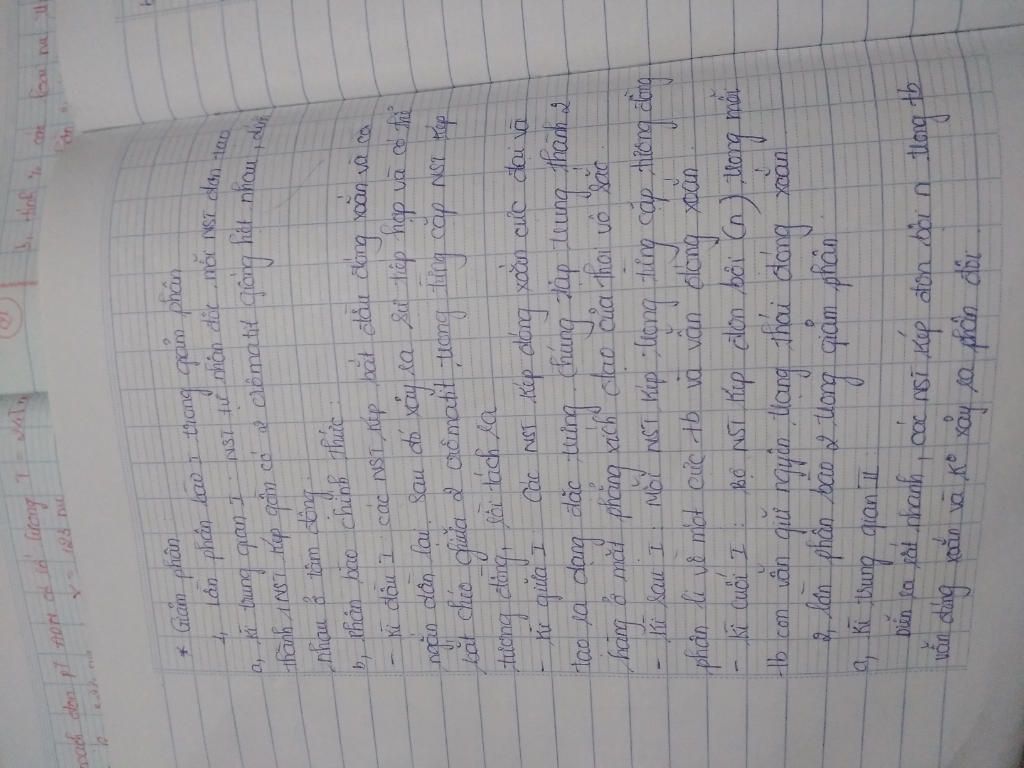 * Giảm phân
1, lần phân bào I trong giảm phân
a, kì trung gian I : NST tự nhân đôi, mỗi NST đơn tạo
thành 1 NST kép gồm có 2 crômatit giống hệt nhau, dính
nhau ở tâm động.
b, phân bào chính thức :
- Kì đầu I : các NST kép bắt đầu đóng xoắn và co
ngắn dần lại. Sau đó xảy ra sự tiếp hợp và có thể
bắt chéo giữa 2 crômatit trong từng cặp NST kép
tương đồng, rồi tách ra
- Kì giữa I : Các NST kép đóng xoắn cực đại và
tạo ra dạng đặc trưng. Chúng tập trung thành 2
hàng ở mặt phẳng xích đạo của thoi vô sắc.
- Kì sau I : Mỗi NST kép trong từng cặp tương đồng
phân li về một cực tb và vẫn đóng xoắn.
- Kì cuối I : bộ NST kép đơn bội (n) trong mỗi
tb con vẫn giữ nguyên trạng thái đóng xoắn
2, lần phân bào 2 trong giảm phân
a, Kì trung gian II
Diễn ra rất nhanh, các NST kép đơn bội n trong tb
vẫn đóng xoắn và K° xảy ra phân đôi